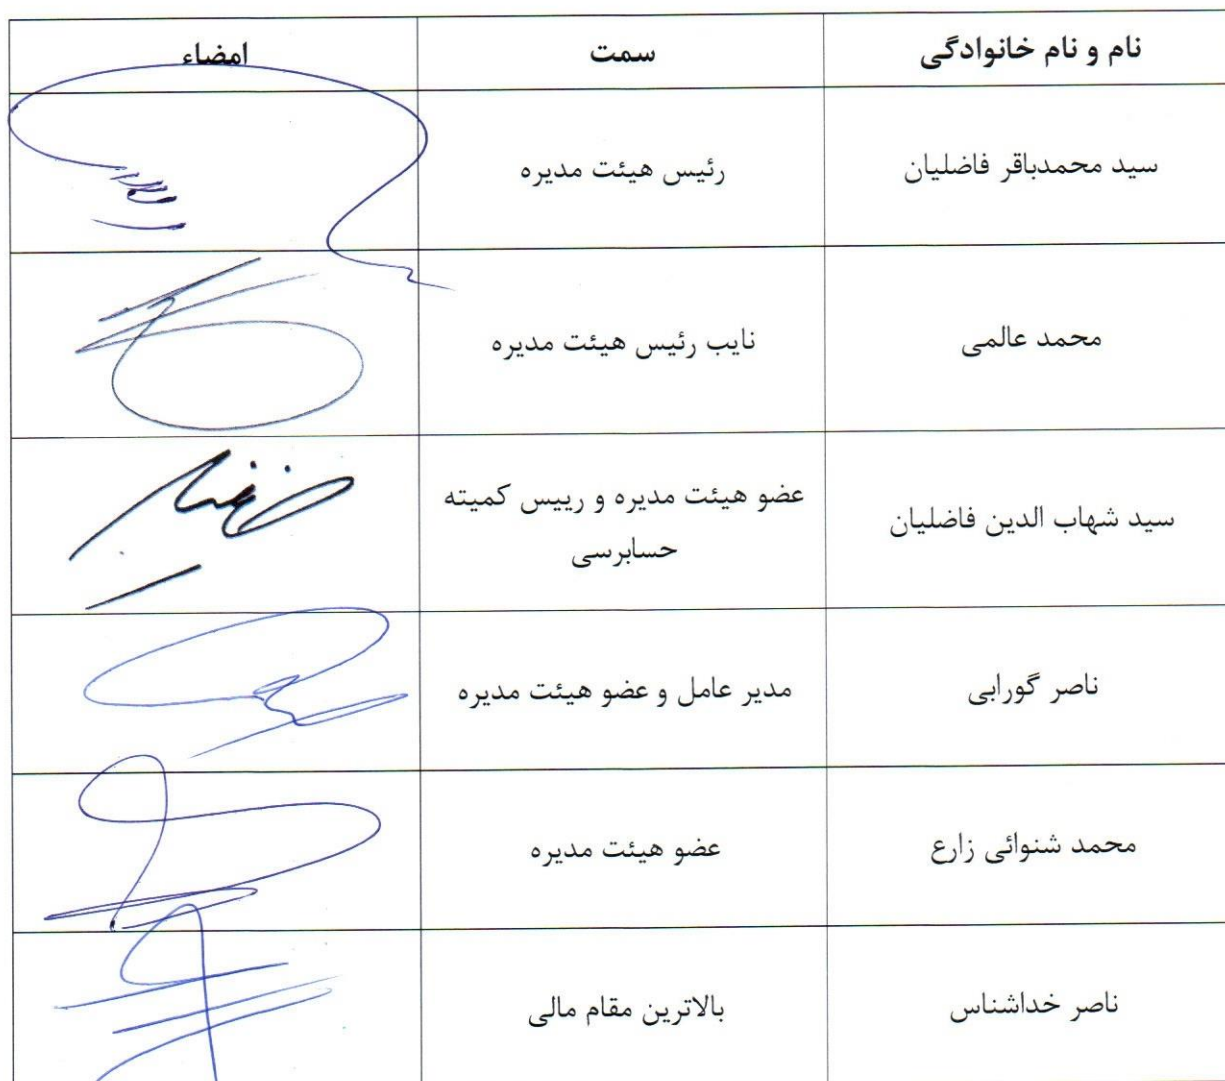 نام و نام خانوادگی سمت امضاء
سید محمدباقر فاضلیان رئیس هیئت مدیره
محمد عالمی نایب رئیس هیئت مدیره
سید شهاب الدین فاضلیان عضو هیئت مدیره و رییس کمیته
حسابرسی
ناصر گورابی مدیر عامل و عضو هیئت مدیره
محمد شنوائی زارع عضو هیئت مدیره
ناصر خداشناس بالاترین مقام مالی